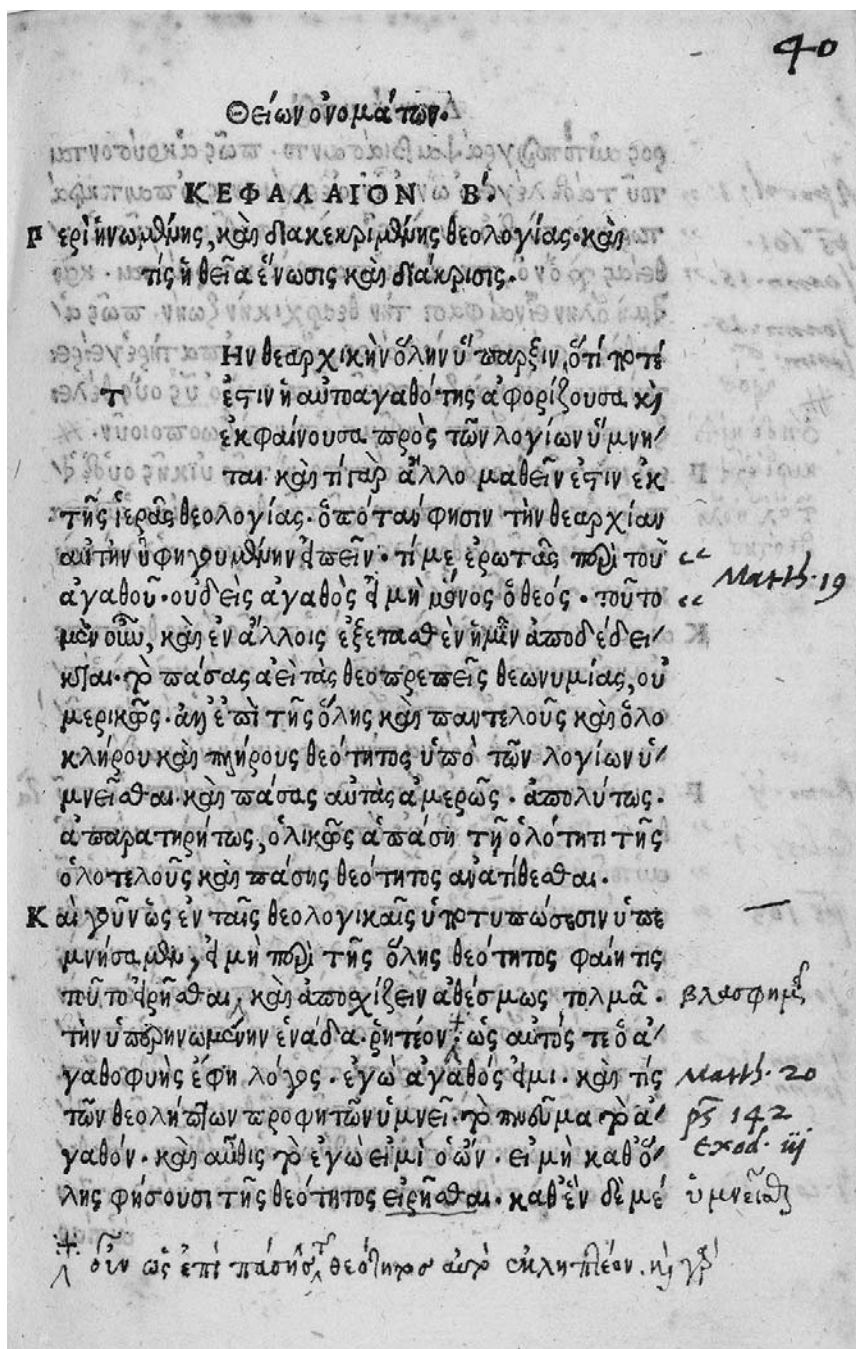 40
Θείων ὀνομάτων.
ΚΕΦΑΛΑΙΟΝ Β΄.
Περὶ ἡνωμένης, καὶ διακεκριμένης θεολογίας. καὶ
τίς ἡ θεῖα ἕνωσις καὶ διάκρισις.
Ην θεαρχικὴν ὅλην ὕπαρξιν, ὅτί ποτέ
Τ ἐστιν ἡ αὐτοαγαθότης ἀφορίζουσα καὶ
ἐκφαίνουσα πρὸς τῶν λογίων ὕμνη/
ται καὶ τί γὰρ ἄλλο μαθεῖν ἐστιν ἐκ
τῆς ἱερᾶς θεολογίας. ὁπόταν φησιν τὴν θεαρχίαν
αὐτὴν ὑφηγουμένην εἰπεῖν. τί με ἐρωτᾶς περὶ τοῦ “
ἀγαθοῦ. οὐδεὶς ἀγαθὸς εἰ μὴ μόνος ὁ θεός. τοῦτο “ Matth. 19
μὲν οὖν, καὶ ἐν ἄλλοις ἐξετασθὲν ἡμῖν ἀποδέδει/
κται. τὸ πάσας ἀεὶ τὰς θεοπρεπεῖς θεωνυμίας, οὐ
μερικῶς. ἀλλ' ἐπὶ τῆς ὅλης καὶ παντελοῦς καὶ ὁλο
κλήρου καὶ πλήρους θεότητος ὑπὸ τῶν λογίων ὑ
μνεῖσθαι. καὶ πάσας αὐτὰς ἀμερῶς. ἀπολύτως.
ἀπαρατηρήτως, ὁλικῶς ἁπάσῃ τῇ ὁλότητι τῆς
ὁλοτελοῦς καὶ πάσης θεότητος ἀνατίθεσθαι.
Καὶ γοῦν ὡς ἐν ταῖς θεολογικαῖς ὑποτυπώσεσιν ὑπε
μνήσαμεν, εἰ μὴ περὶ τῆς ὅλης θεότητος φαίη τις
τοῦτο εἰρῆσθαι, καὶ ἀποσχίζειν ἀθέσμως τολμᾶ. βλασφημεῖ
τὴν ὑπερηνωμένην ἑνάδα. ῥητέον ὡς αὐτός τε ὁ ἀ/
γαθοφυὴς ἔφη λόγος. ἐγὼ ἀγαθός εἰμι. καὶ τίς Matth. 20
τῶν θεολήπτων προφητῶν ὑμνεῖ. τὸ πνεῦμα τὸ ἀ/ ps 142
γαθόν. καὶ αὖθις τὸ ἐγὼ εἰμὶ ὁ ὤν. εἰ μὴ καθ' ὅ/ Exod. iij
λης φήσουσι τῆς θεότητος εἰρῆσθαι. καθ' ἓν δὲ μέ ὑμνεῖσθαι
ὡς ἐπὶ πάσης τ θεότητος